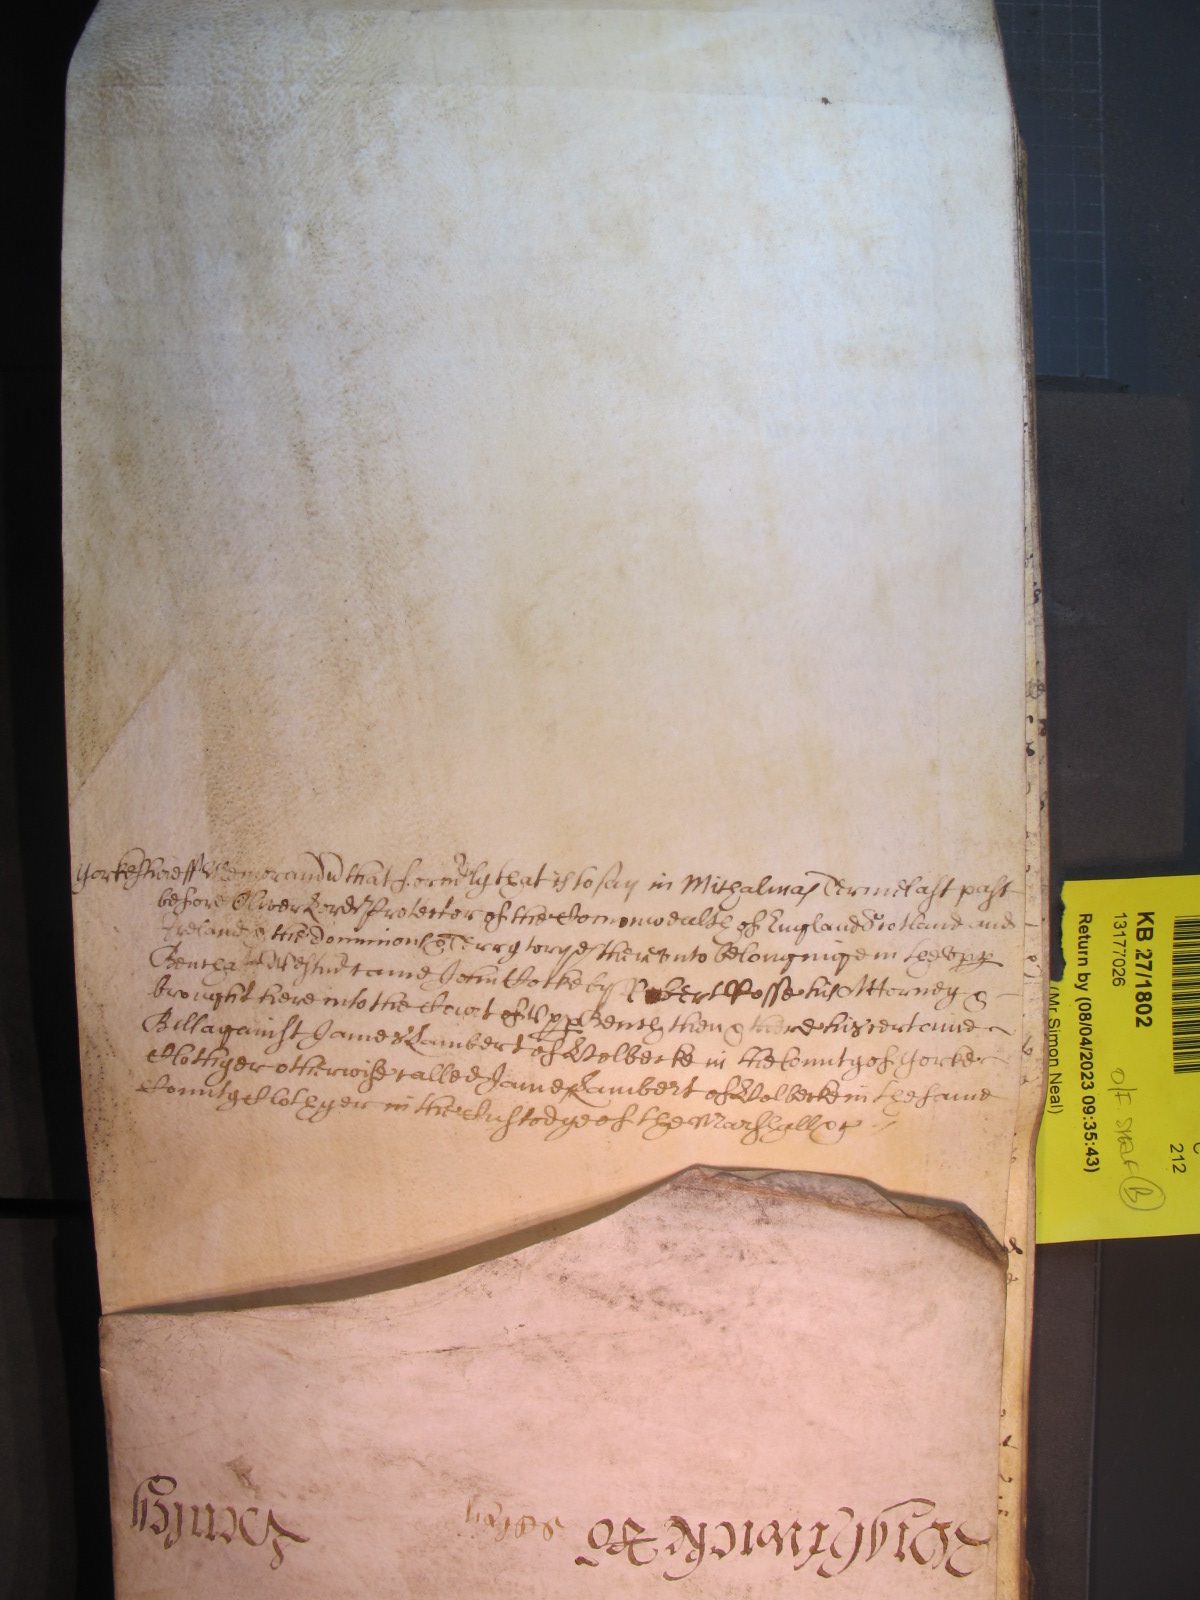 Yorkeshire ss Memorandu that formly that is to say in Michalmas Terme last past
before Oliver Lord Protector of the Comonwealth of England Scotland and
Ireland & the Dominions & Terrytoryes thereunto belonginge in the Upp
Bench att Westmr came John by Robert Rosse his Attorney &
brought here into the Court of Upp Bench then & there his certaine
Bill against James Lambert of Holbecke in the County of Yorke
Clothyer otherwise called James Lambert of Holbecke in the same
County Clothyer in the Custodye of the Marshall &c
KB 27/1802
13177026
Return by (08/04/2023 09:35:43)
(Mr Simon Neal)
212
O/F STRAF
B